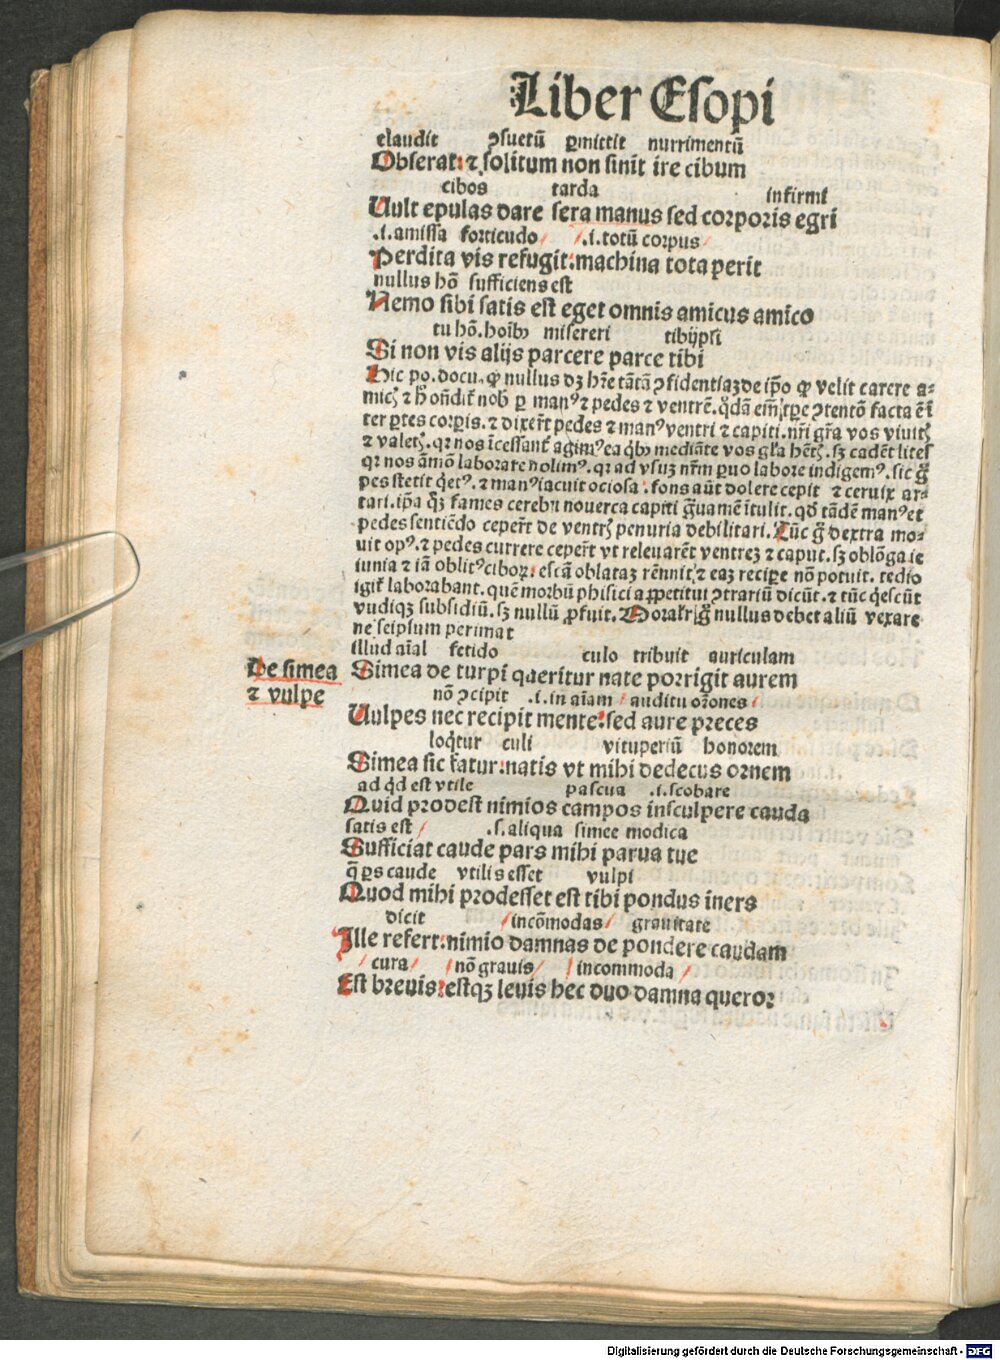 Liber Esopi
claudit ꝯsuetū ꝑmittit nutrimentū
Obserat: ⁊ solitum non sinit ire cibum
cibos tarda infirmi
Uult epulas dare sera manus sed corporis egri
.i.amissa fortitudo .i.totū corpus
Perdita vis refugit:machina tota perit
nullus hō sufficiens est
Nemo sibi satis est eget omnis amicus amico
tu hō. misereri tibijpsi
Si non vis alijs parcere parce tibi
Hic po.docu. nullus dꝫ hr̄e tātā ꝯfidentiaꝫ de ip̄o velit carere a-
⁊ nob ꝑ manꝰ ⁊ pedes ⁊ ventrē. q̄dā ꝯtentō facta
ter ꝑtes corꝑis. ⁊ dixer̄t pedes ⁊ manꝰ ventri ⁊ capiti. nr̄i gr̄a vos
⁊ qr nos agimꝰ ea mediāte vos sꝫ cadēt lites
qr nos āmō laborare nolimꝰ. qr ad vsuꝫ nr̄m ꝑuo labore indigemꝰ. sic
pes stetit ⁊ manꝰ iacuit ociosa. fons aūt dolere cepit ⁊ ceruix ar-
tari. ip̄a fames cerebri nouerca capiti ītulit. tādē manꝰ et
pedes sentiēdo ceper̄t de penuria debilitari. Tūc dextra mo-
uit opꝰ. ⁊ pedes currere ceper̄t vt releuarēt ventreꝫ ⁊ caput. sꝫ oblōga ie
iunia ⁊ iā oblitꝰ ciboꝝ: escā oblataꝫ rēnuit, ⁊ eaꝫ recipe nō potuit. tedio
laborabant. quē morbū phisici appetitui ꝯtrariū dicūt. ⁊ tūc
vudiqꝫ subsidiū. sꝫ nullū ꝓfuit. nullus debet aliū vexare
ne seipsum perimat
illud aīal fetido culo tribuit auriculam
De simea
⁊ vulpe
Simea de turpi queritur nate porrigit aurem
nō ꝯcipit .i.in aīam auditu or̄ones
Uulpes nec recipit mente:sed aure preces
loq̄tur culi vituperiū honorem
Simea sic fatur:natis vt mihi dedecus ornem
ad qd est vtile pascua .i.scobare
Quid prodest nimios campos insculpere cauda
satis est .s.aliqua simee modica
Sufficiat caude pars mihi parua tue
q̄ ꝑs caude vtilis esset vulpi
Quod mihi prodesset est tibi pondus iners
dicit incōmodas grauitate
Ille refert:nimio damnas de pondere caudam
cura nō grauis incommoda
Est breuis:estqꝫ leuis hec duo damna queror
Digitalisierung gefördert durch die Deutsche Forschungsgemeinschaft - DFG